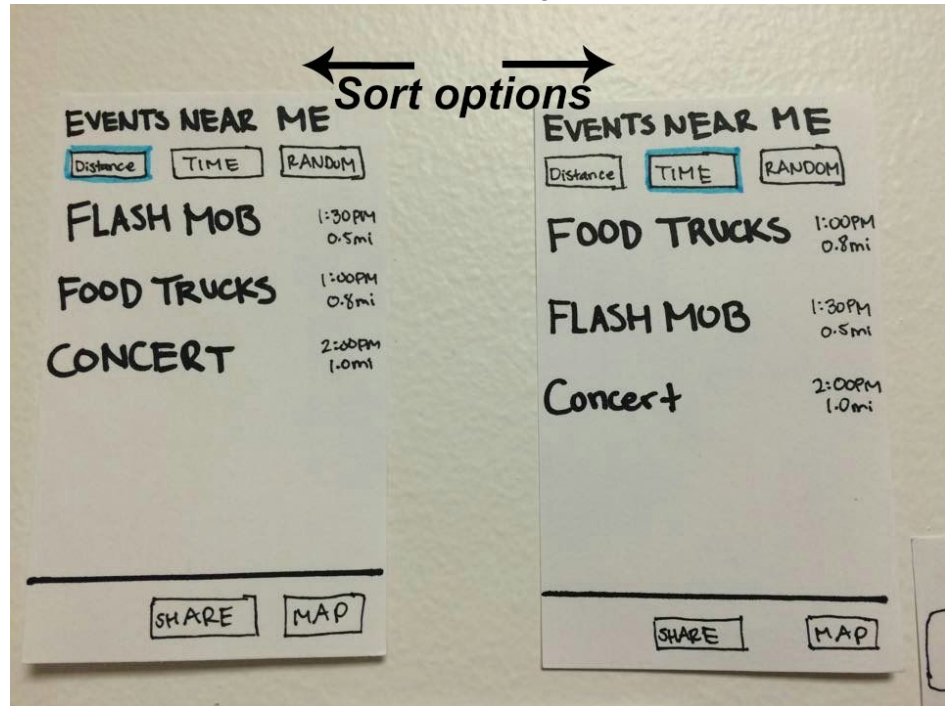 Sort options
EVENTS NEAR ME
Distance TIME RANDOM
FLASH MOB 1:30PM
0.5mi
FOOD TRUCKS 1:00PM
0.8mi
CONCERT 2:00PM
1.0mi
SHARE MAP
EVENTS NEAR ME
Distance TIME RANDOM
FOOD TRUCKS 1:00PM
0.8mi
FLASH MOB 1:30PM
0.5mi
Concert 2:00PM
1.0mi
SHARE MAP